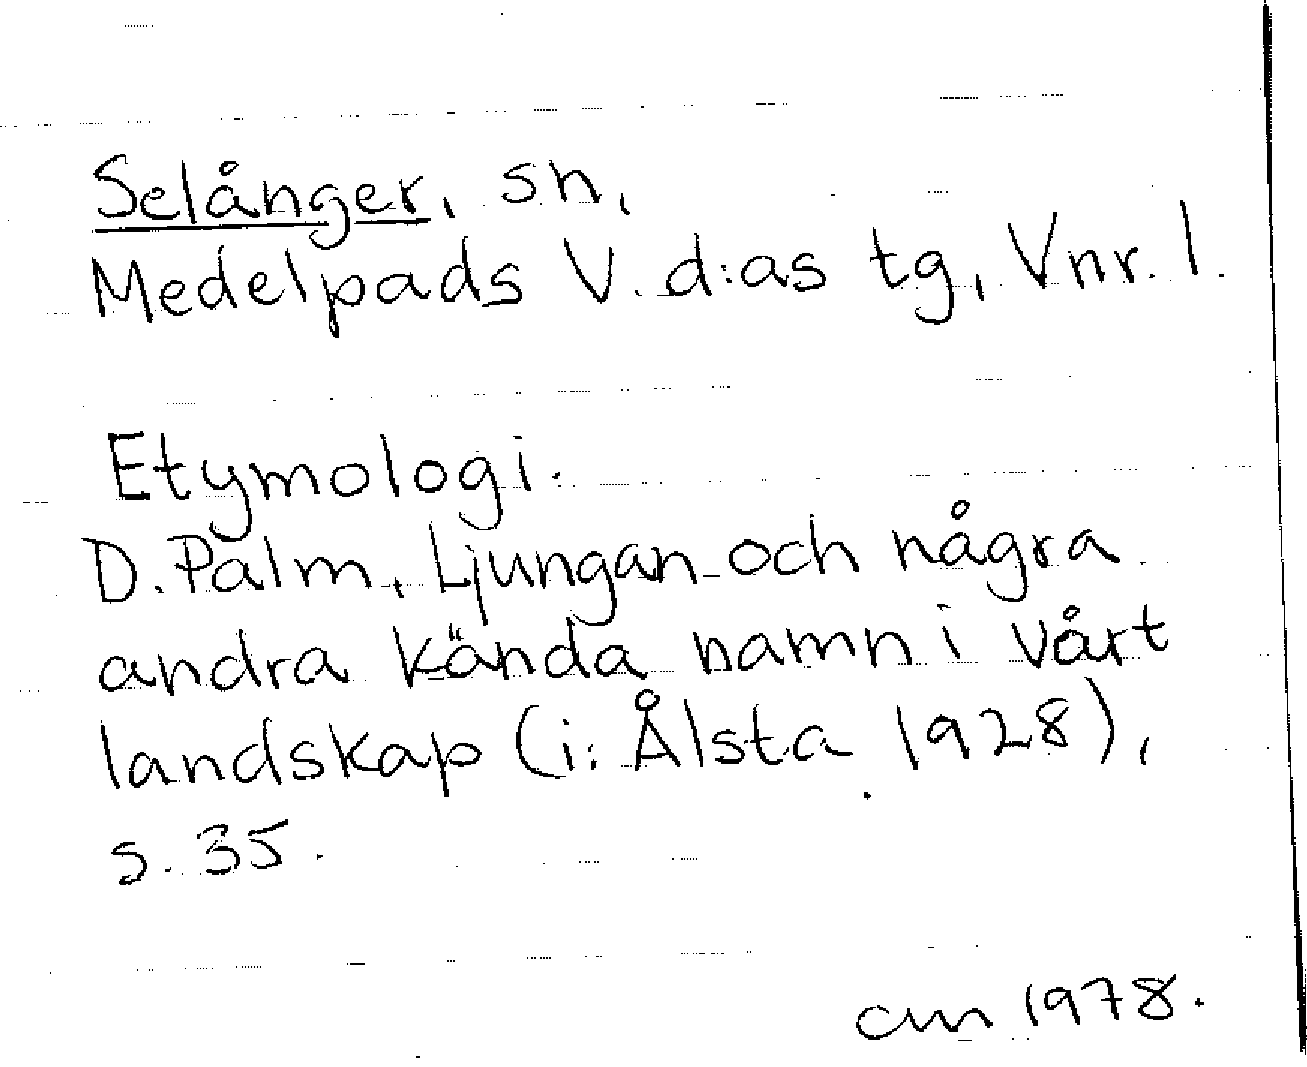 Selånger, sn,
Medelpads V. d:as tg, Vnr. 1.
Etymologi.
D. Palm, Ljungan och några
andra kända namn i vårt
landskap (i: Ålsta 1928),
s. 35.
am 1978.